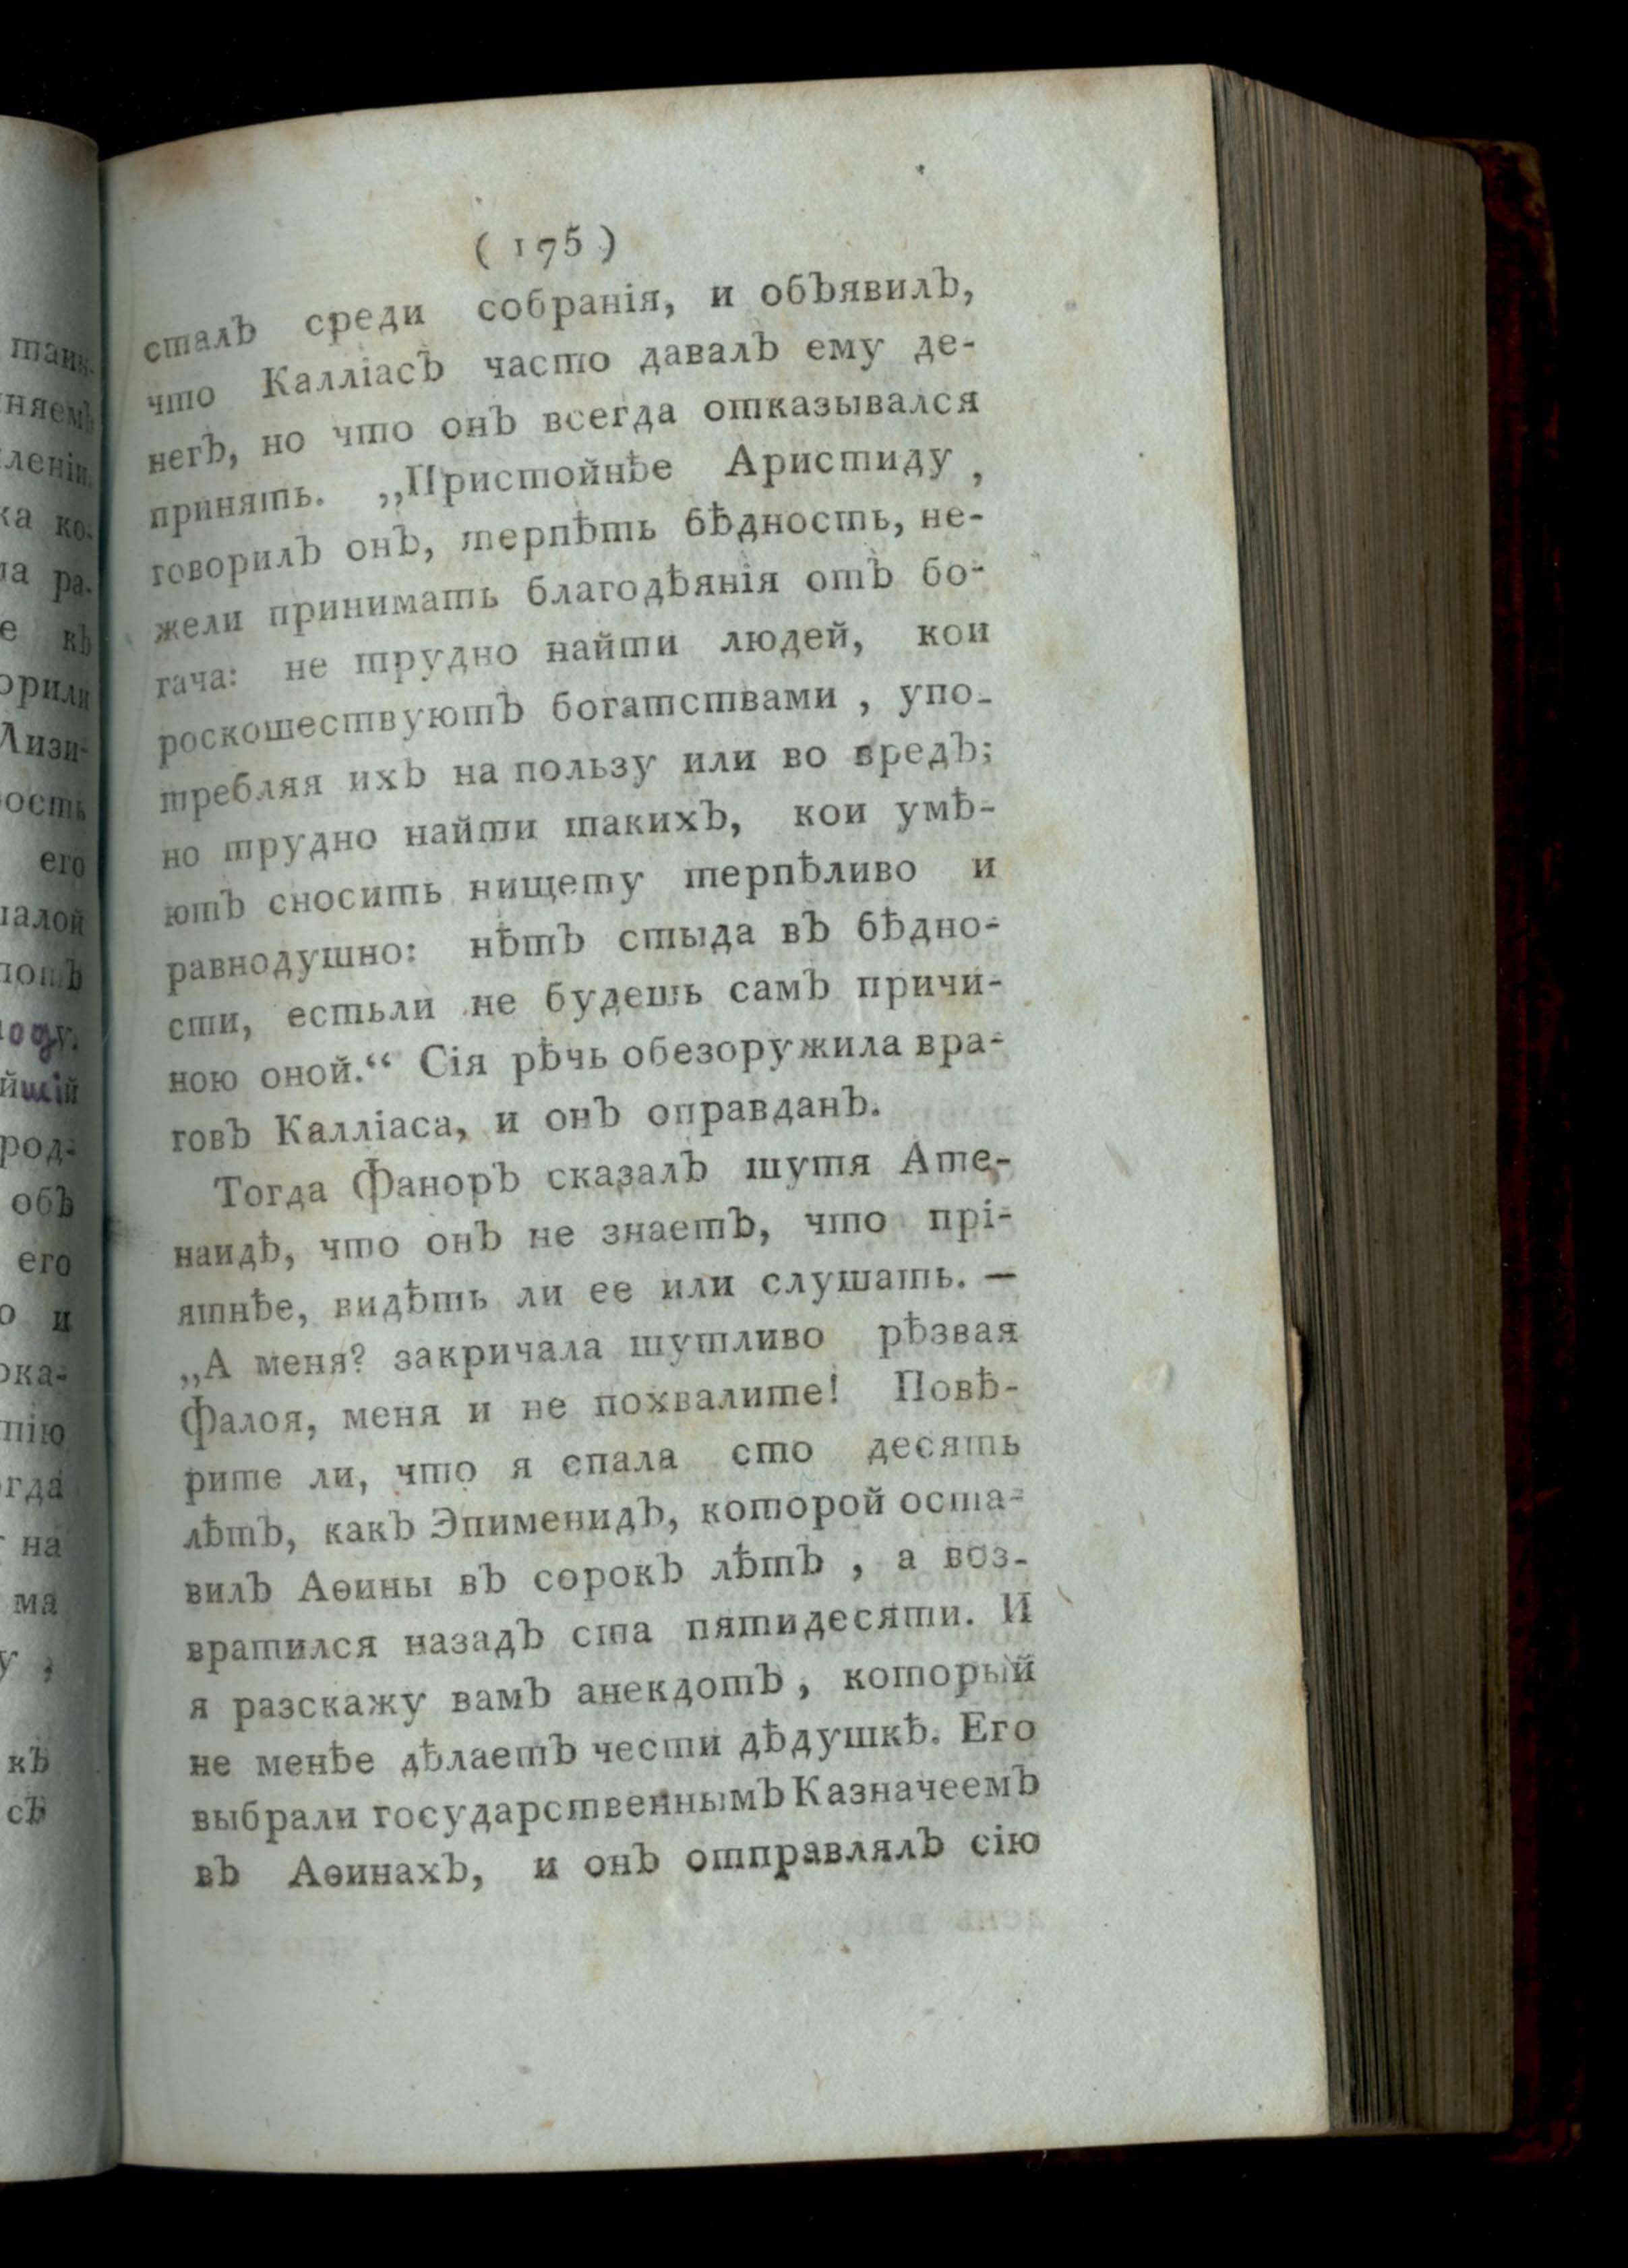 ( 175 )
сталъ среди собранія, и объявилъ,
что Калліасъ часто давалъ ему де-
негъ, но что онъ всегда отказывался
принять. „Пристойнѣе Аристиду,
говорилъ онъ, терпѣть бѣдность, не-
жели принимать благодѣянія отъ бо-
гача: не трудно найти людей, кои
роскошествуютъ богатствами, упо-
требляя ихъ на пользу или во вредъ;
но трудно найти такихъ, кои умѣ-
ютъ сносить нищету терпѣливо и
равнодушно: нѣтъ стыда въ бѣдно-
сти, естьли не будешь самъ причи-
ною оной.“ Сія рѣчь обезоружила вра-
говъ Калліаса, и онъ оправданъ.
Тогда Фаноръ сказалъ шутя Ате-
наидѣ, что онъ не знаетъ, что прі-
ятнѣе, видѣть ли ее или слушать. —
„А меня? закричала шутливо рѣзвая
Фалоя, меня и не похвалите! Повѣ-
рите ли, что я спала сто десять
лѣтъ, какъ Эпименидъ, которой оста-
вилъ Аѳины въ сорокъ лѣтъ, а воз-
вратился назадъ ста пятидесяти. И
я разскажу вамъ анекдотъ, который
не менѣе дѣлаетъ чести дѣдушкѣ. Его
выбрали государственнымъ Казначеемъ
въ Аѳинахъ, и онъ отправлялъ сію